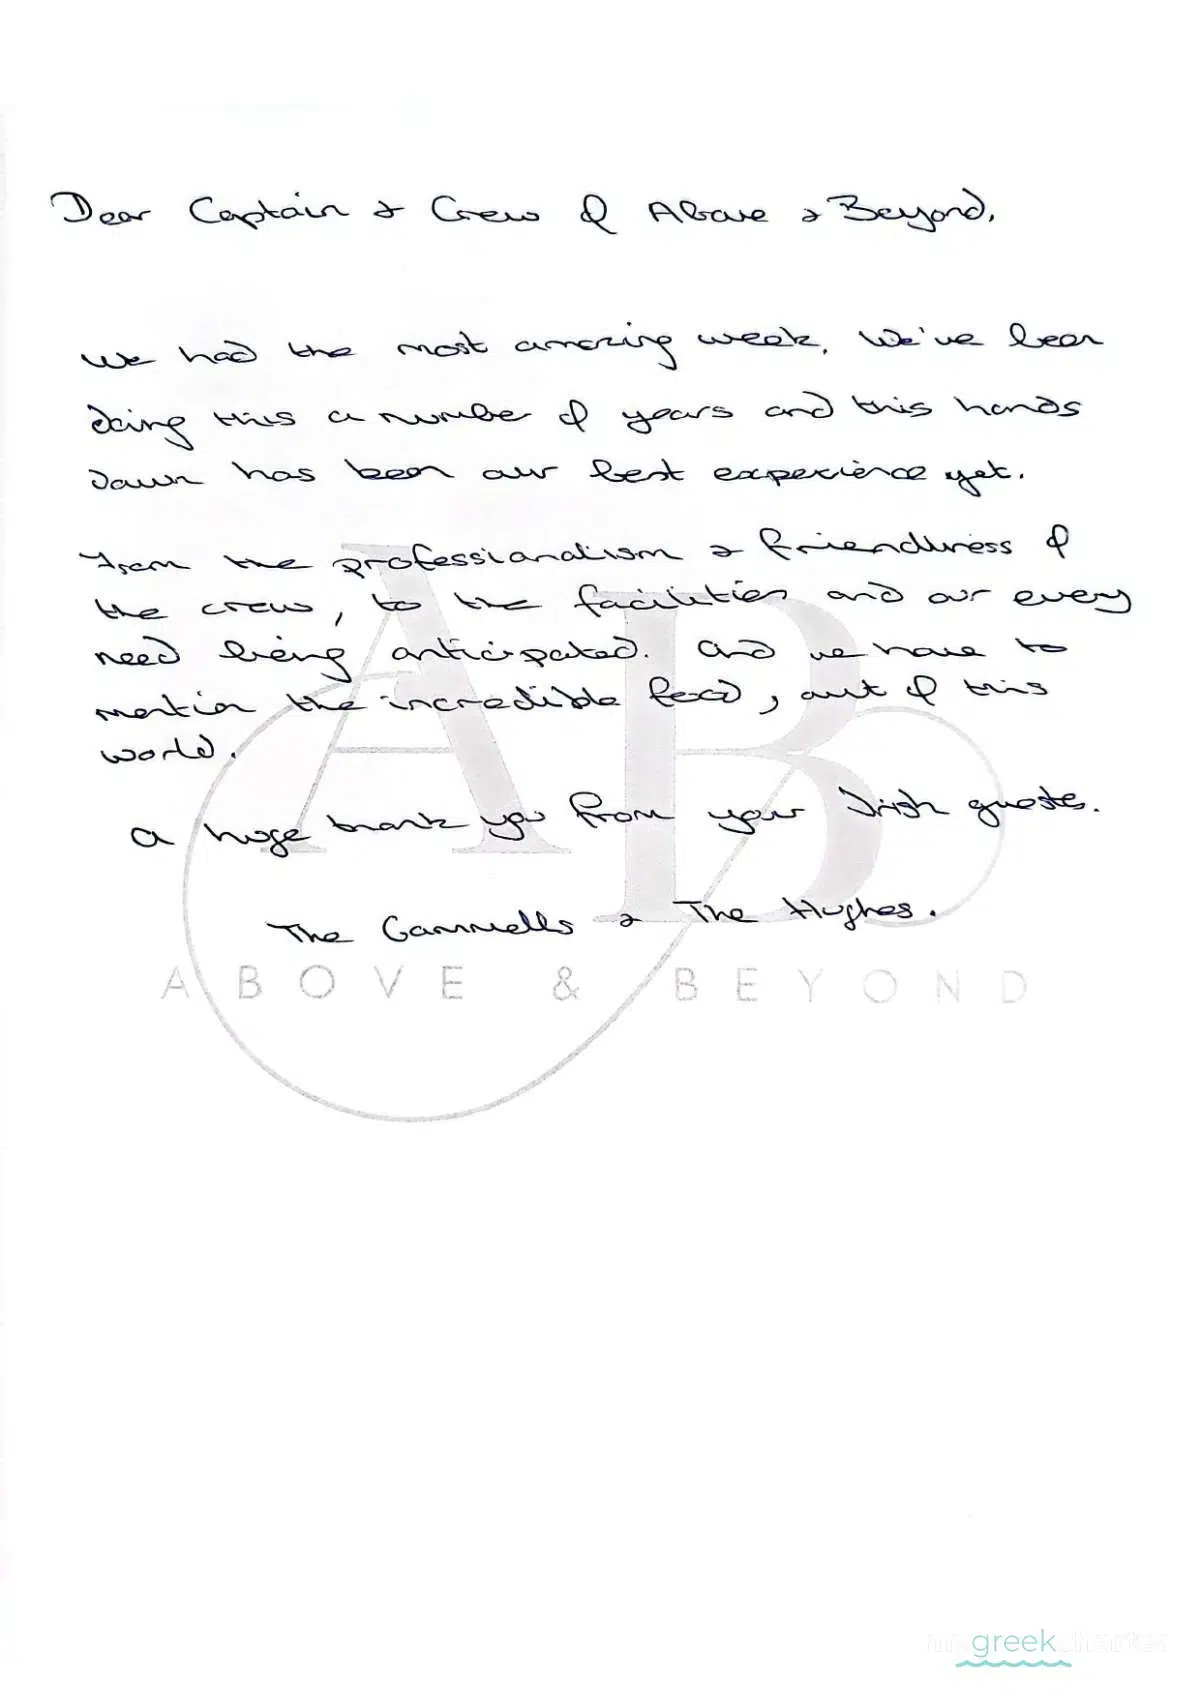 Dear Captain & Crew of Above & Beyond,
We had the most amazing week. We've been
doing this a number of years and this hands
down has been our best experience yet.
From the professionalism & friendliness of
the crew, to the facilities and our every
need being anticipated. And we have to
mention the incredible food, out of this
world.
A huge thank you from your Irish guests.
The & The Hughes.
AB
ABOVE & BEYOND
my greek charter